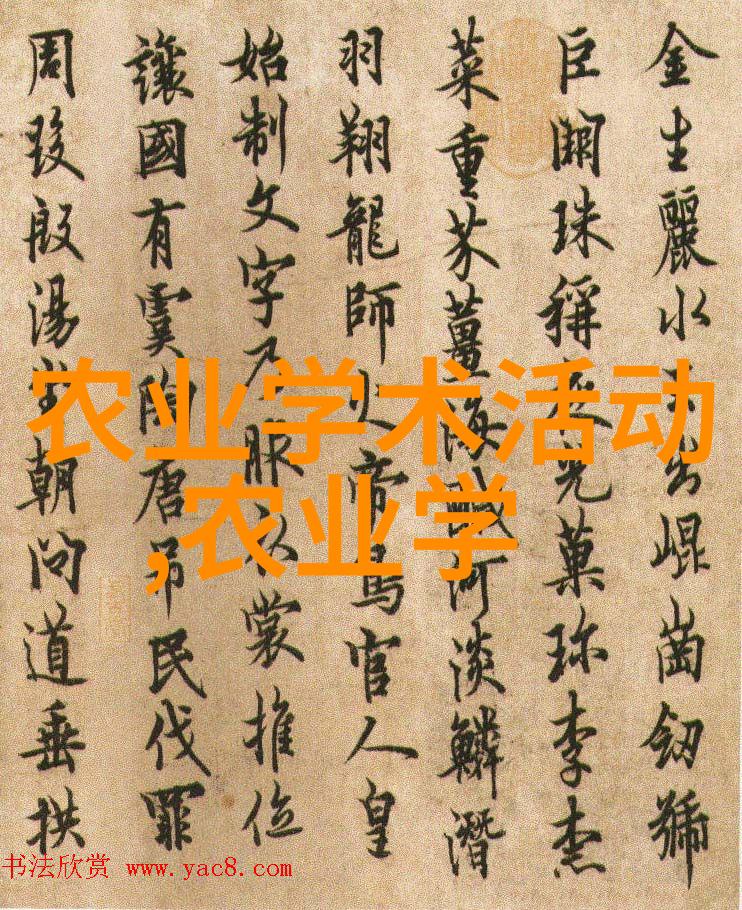 金生麗水玉出崐崗劒號
巨闕珠稱夜光菓珎李柰
菜重芥薑海醎河淡鱗潛
羽翔龍師火帝鳥官人皇
始制文字乃服衣裳推位
讓國有虞陶唐弔民伐罪
周發殷湯坐朝問道垂拱
农业学术活动
,农业学
书法欣赏 www.yac8.com